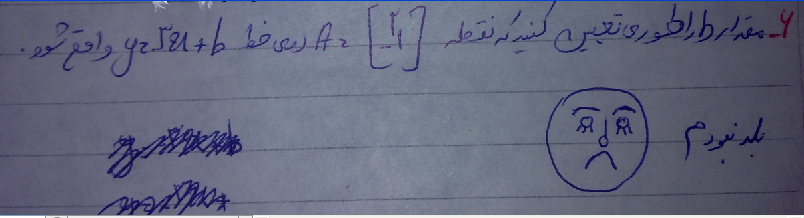 ۶- مقدار b را طوری تعیین کنید که نقطه A = [۲ -۱] روی خط y = ۳x + b واقع شود.
بلد نبودم